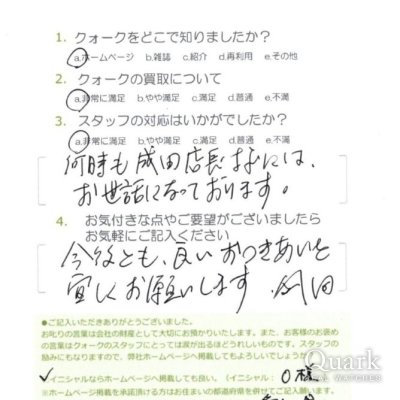 1. クォークをどこで知りましたか?
a.ホームページ b.雑誌 c.紹介 d.再利用 e.その他
2. クォークの買取について
a.非常に満足 b.やや満足 c.満足 d.普通 e.不満
3. スタッフの対応はいかがでしたか?
a.非常に満足 b.やや満足 c.満足 d.普通 e.不満
何時も成田店長さまには、
お世話になっております。
4. お気付きな点やご要望がございましたら
お気軽にご記入ください
今後とも、良いおつきあいを
宜しくお願いします
●ご記入いただきありがとうございました。
お叱りの言葉は会社の財産として大切にお預かりいたします。また、お客様のお褒め
の言葉はクォークのスタッフにとっては涙が出るほどうれしいものです。スタッフの
励みにもなりますので、弊社ホームページへ掲載してもよろしいでしょうか
✓イニシャルならホームページへ掲載しても良い。(イニシャル: O様
※ホームページ掲載を承諾頂ける方はお住まいの都道府県を併せてご記入願います。
Quark
WATCHES